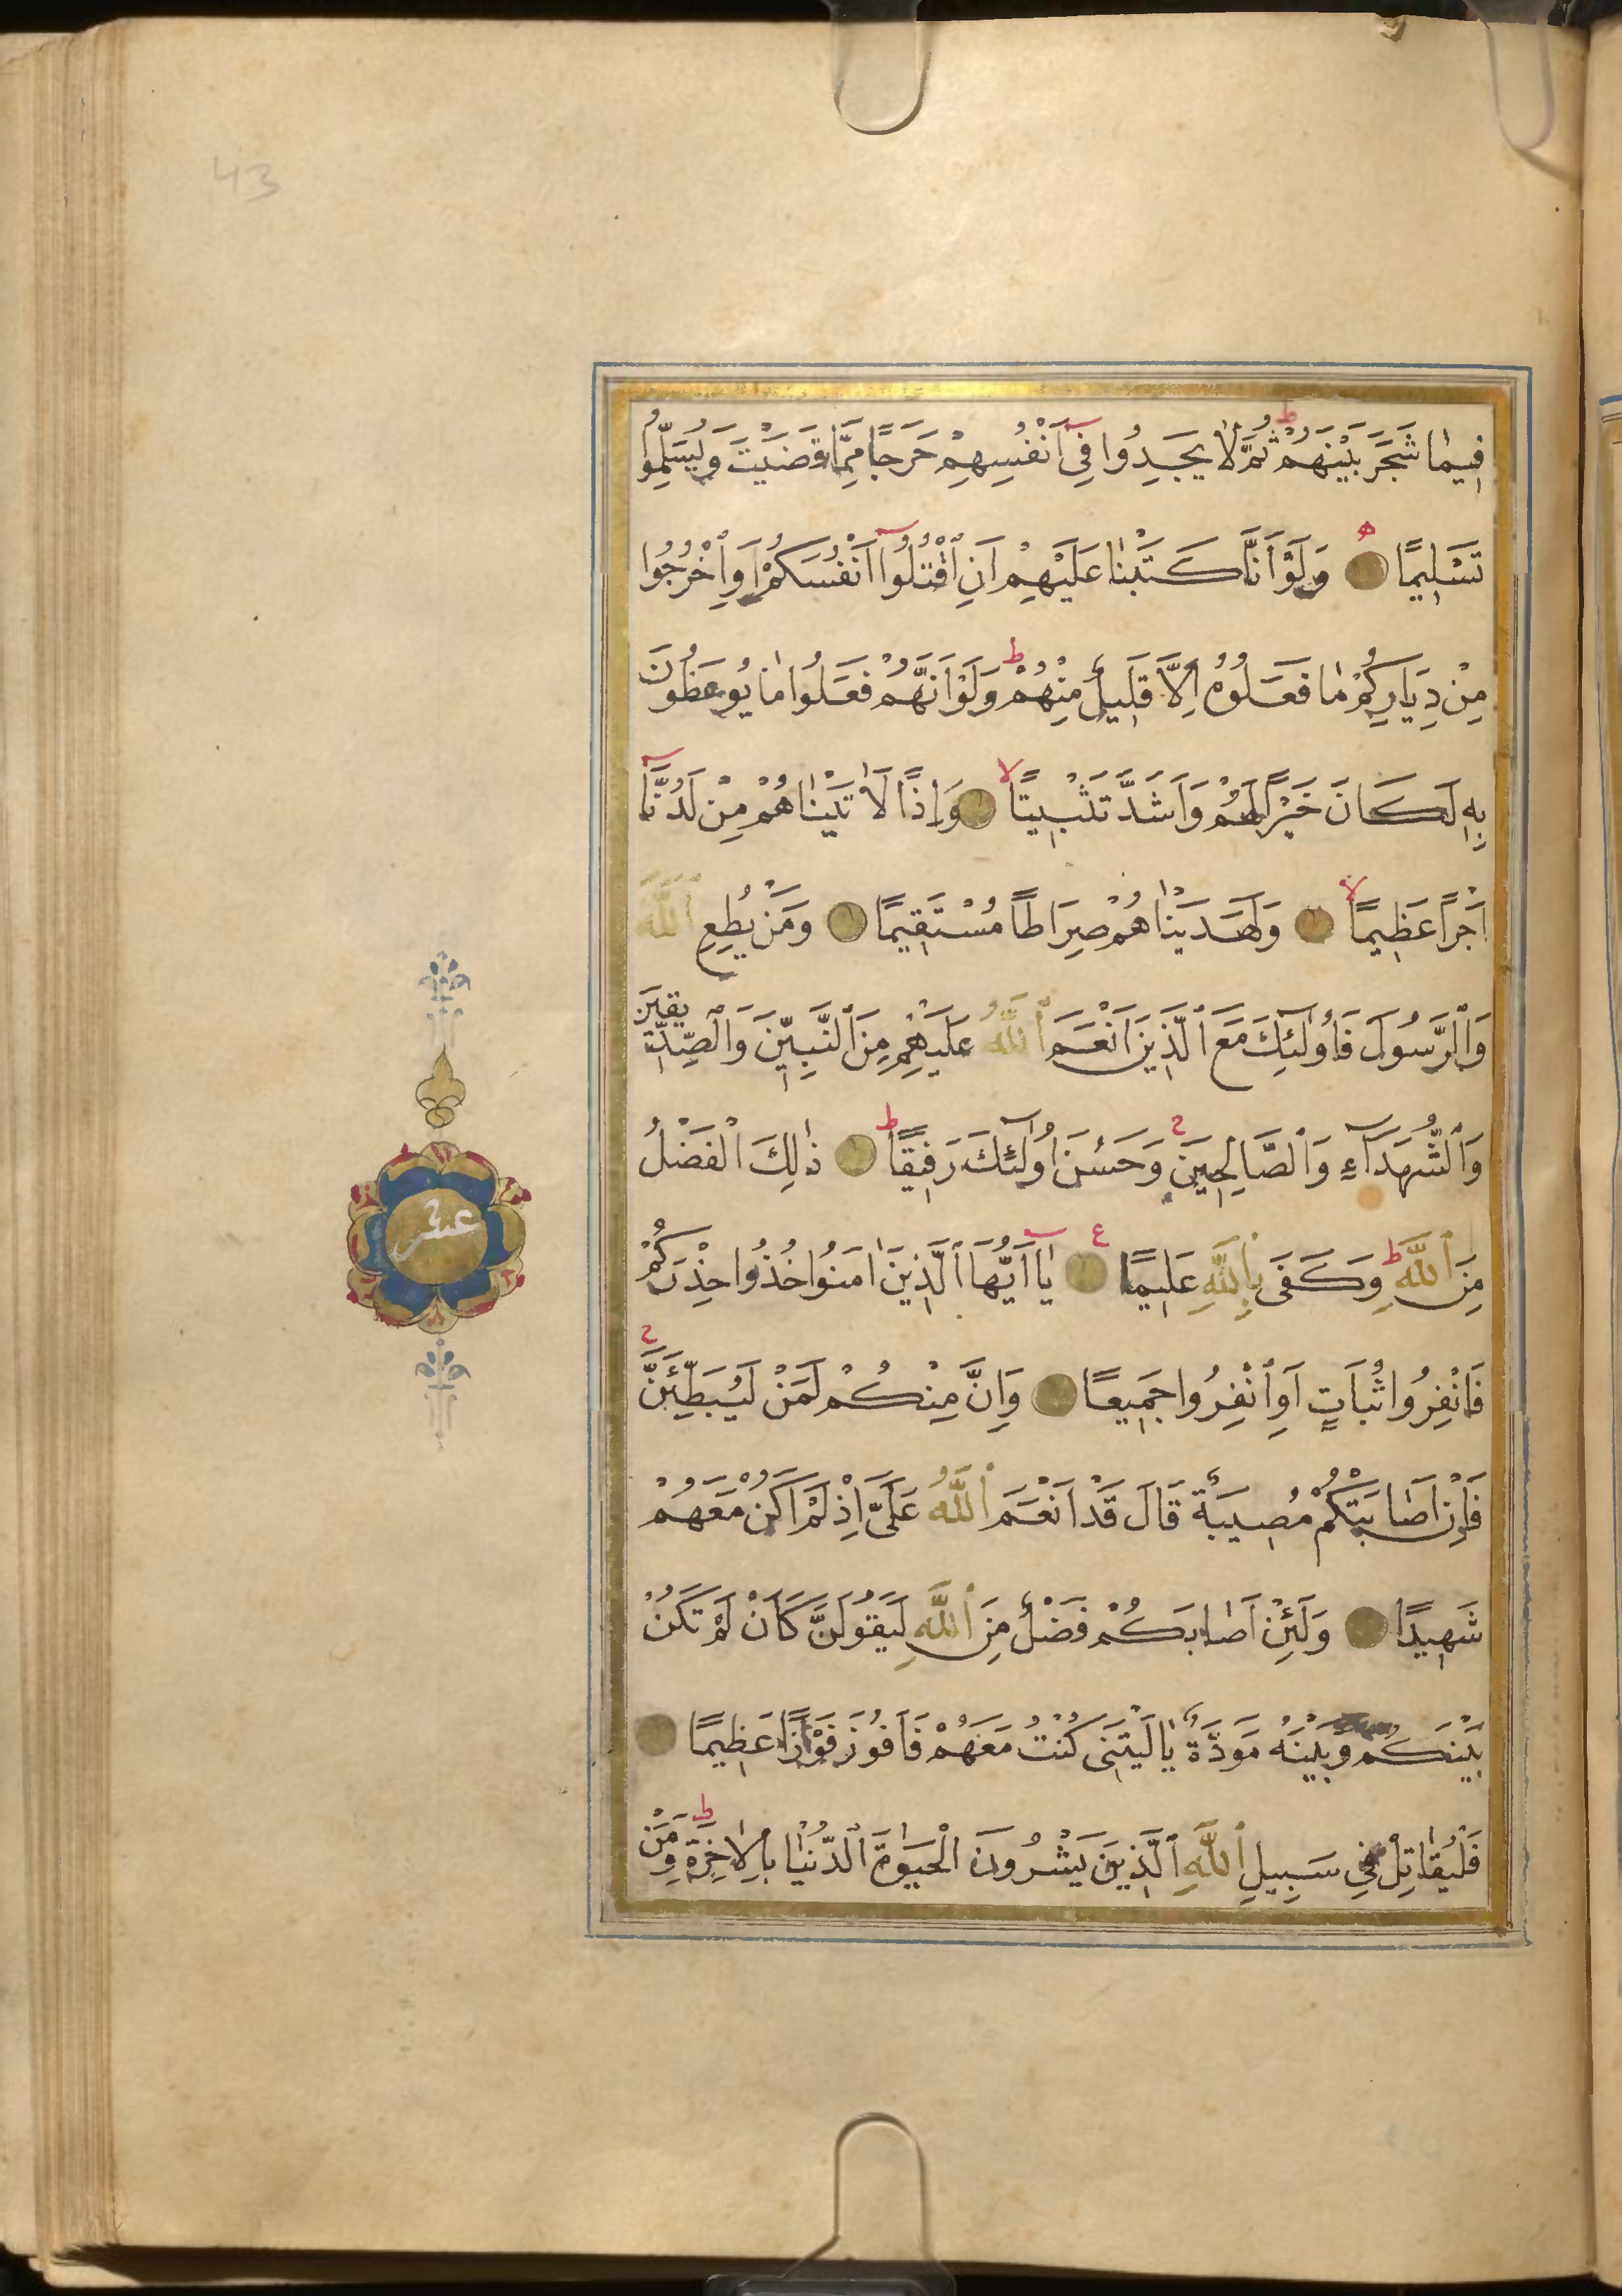 43
فِيمَا شَجَرَ بَيْنَهُمْ ثُمَّ لَا يَجِدُوا فِي أَنْفُسِهِمْ حَرَجًا مِمَّا قَضَيْتَ وَيُسَلِّمُوا
تَسْلِيمًا وَلَوْ أَنَّا كَتَبْنَا عَلَيْهِمْ أَنِ اقْتُلُوا أَنْفُسَكُمْ أَوِ اخْرُجُوا
مِنْ دِيَارِكُمْ مَا فَعَلُوهُ إِلَّا قَلِيلٌ مِنْهُمْ وَلَوْ أَنَّهُمْ فَعَلُوا مَا يُوعَظُونَ
بِهِ لَكَانَ خَيْرًا لَهُمْ وَأَشَدَّ تَثْبِيتًا وَإِذًا لَآتَيْنَاهُمْ مِنْ لَدُنَّا
أَجْرًا عَظِيمًا وَلَهَدَيْنَاهُمْ صِرَاطًا مُسْتَقِيمًا وَمَنْ يُطِعِ اللَّهَ
وَالرَّسُولَ فَأُولَٰئِكَ مَعَ الَّذِينَ أَنْعَمَ اللَّهُ عَلَيْهِمْ مِنَ النَّبِيِّنَ وَالصِّدِّيقِينَ
وَالشُّهَدَاءِ وَالصَّالِحِينَ وَحَسُنَ أُولَٰئِكَ رَفِيقًا ذَٰلِكَ الْفَضْلُ
مِنَ اللَّهِ وَكَفَى بِاللَّهِ عَلِيمًا يَا أَيُّهَا الَّذِينَ آمَنُوا خُذُوا حِذْرَكُمْ
فَانْفِرُوا ثُبَاتٍ أَوِ انْفِرُوا جَمِيعًا وَإِنَّ مِنْكُمْ لَمَنْ لَيُبَطِّئَنَّ
فَإِنْ أَصَابَتْكُمْ مُصِيبَةٌ قَالَ قَدْ أَنْعَمَ اللَّهُ عَلَيَّ إِذْ لَمْ أَكُنْ مَعَهُمْ
شَهِيدًا وَلَئِنْ أَصَابَكُمْ فَضْلٌ مِنَ اللَّهِ لَيَقُولَنَّ كَأَنْ لَمْ تَكُنْ
بَيْنَكُمْ وَبَيْنَهُ مَوَدَّةٌ يَا لَيْتَنِي كُنْتُ مَعَهُمْ فَأَفُوزَ فَوْزًا عَظِيمًا
فَلْيُقَاتِلْ فِي سَبِيلِ اللَّهِ الَّذِينَ يَشْرُونَ الْحَيَوٰةَ الدُّنْيَا بِالْآخِرَةِ وَمَنْ
عشر